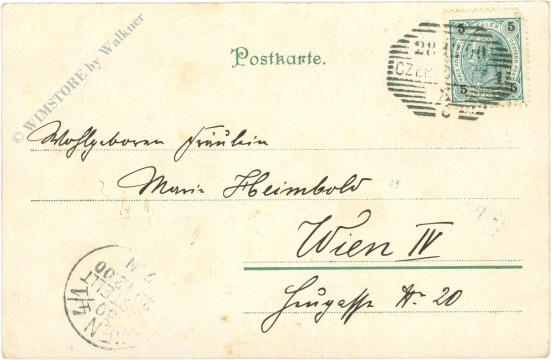 © WIMSTORE by Walkner
Postkarte.
5 5
28 00
CZER
Wohlgeboren Fräulein
Marie Heimbold
Wien IV
Heugasse Nr. 20
WIEN
BESTELLT
00
7 N